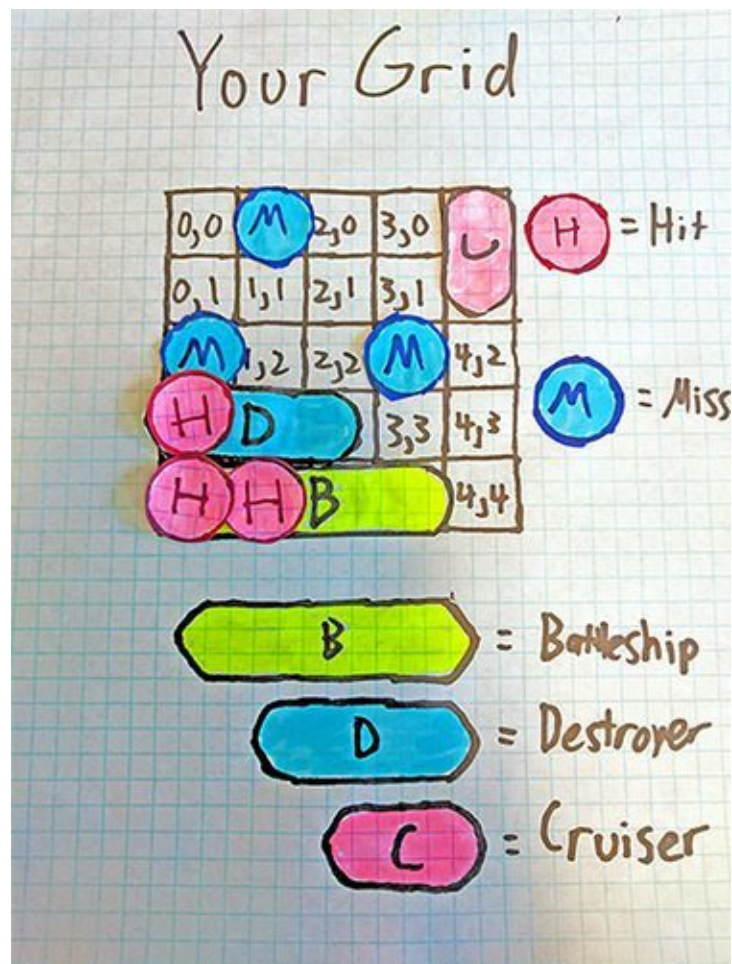 Your Grid
0,0 M 2,0 3,0 C H = Hit
0,1 1,1 2,1 3,1
M 1,2 2,2 M 4,2
M = Miss
H D 3,3 4,3
H H B 4,4
B = Battleship
D = Destroyer
C = Cruiser